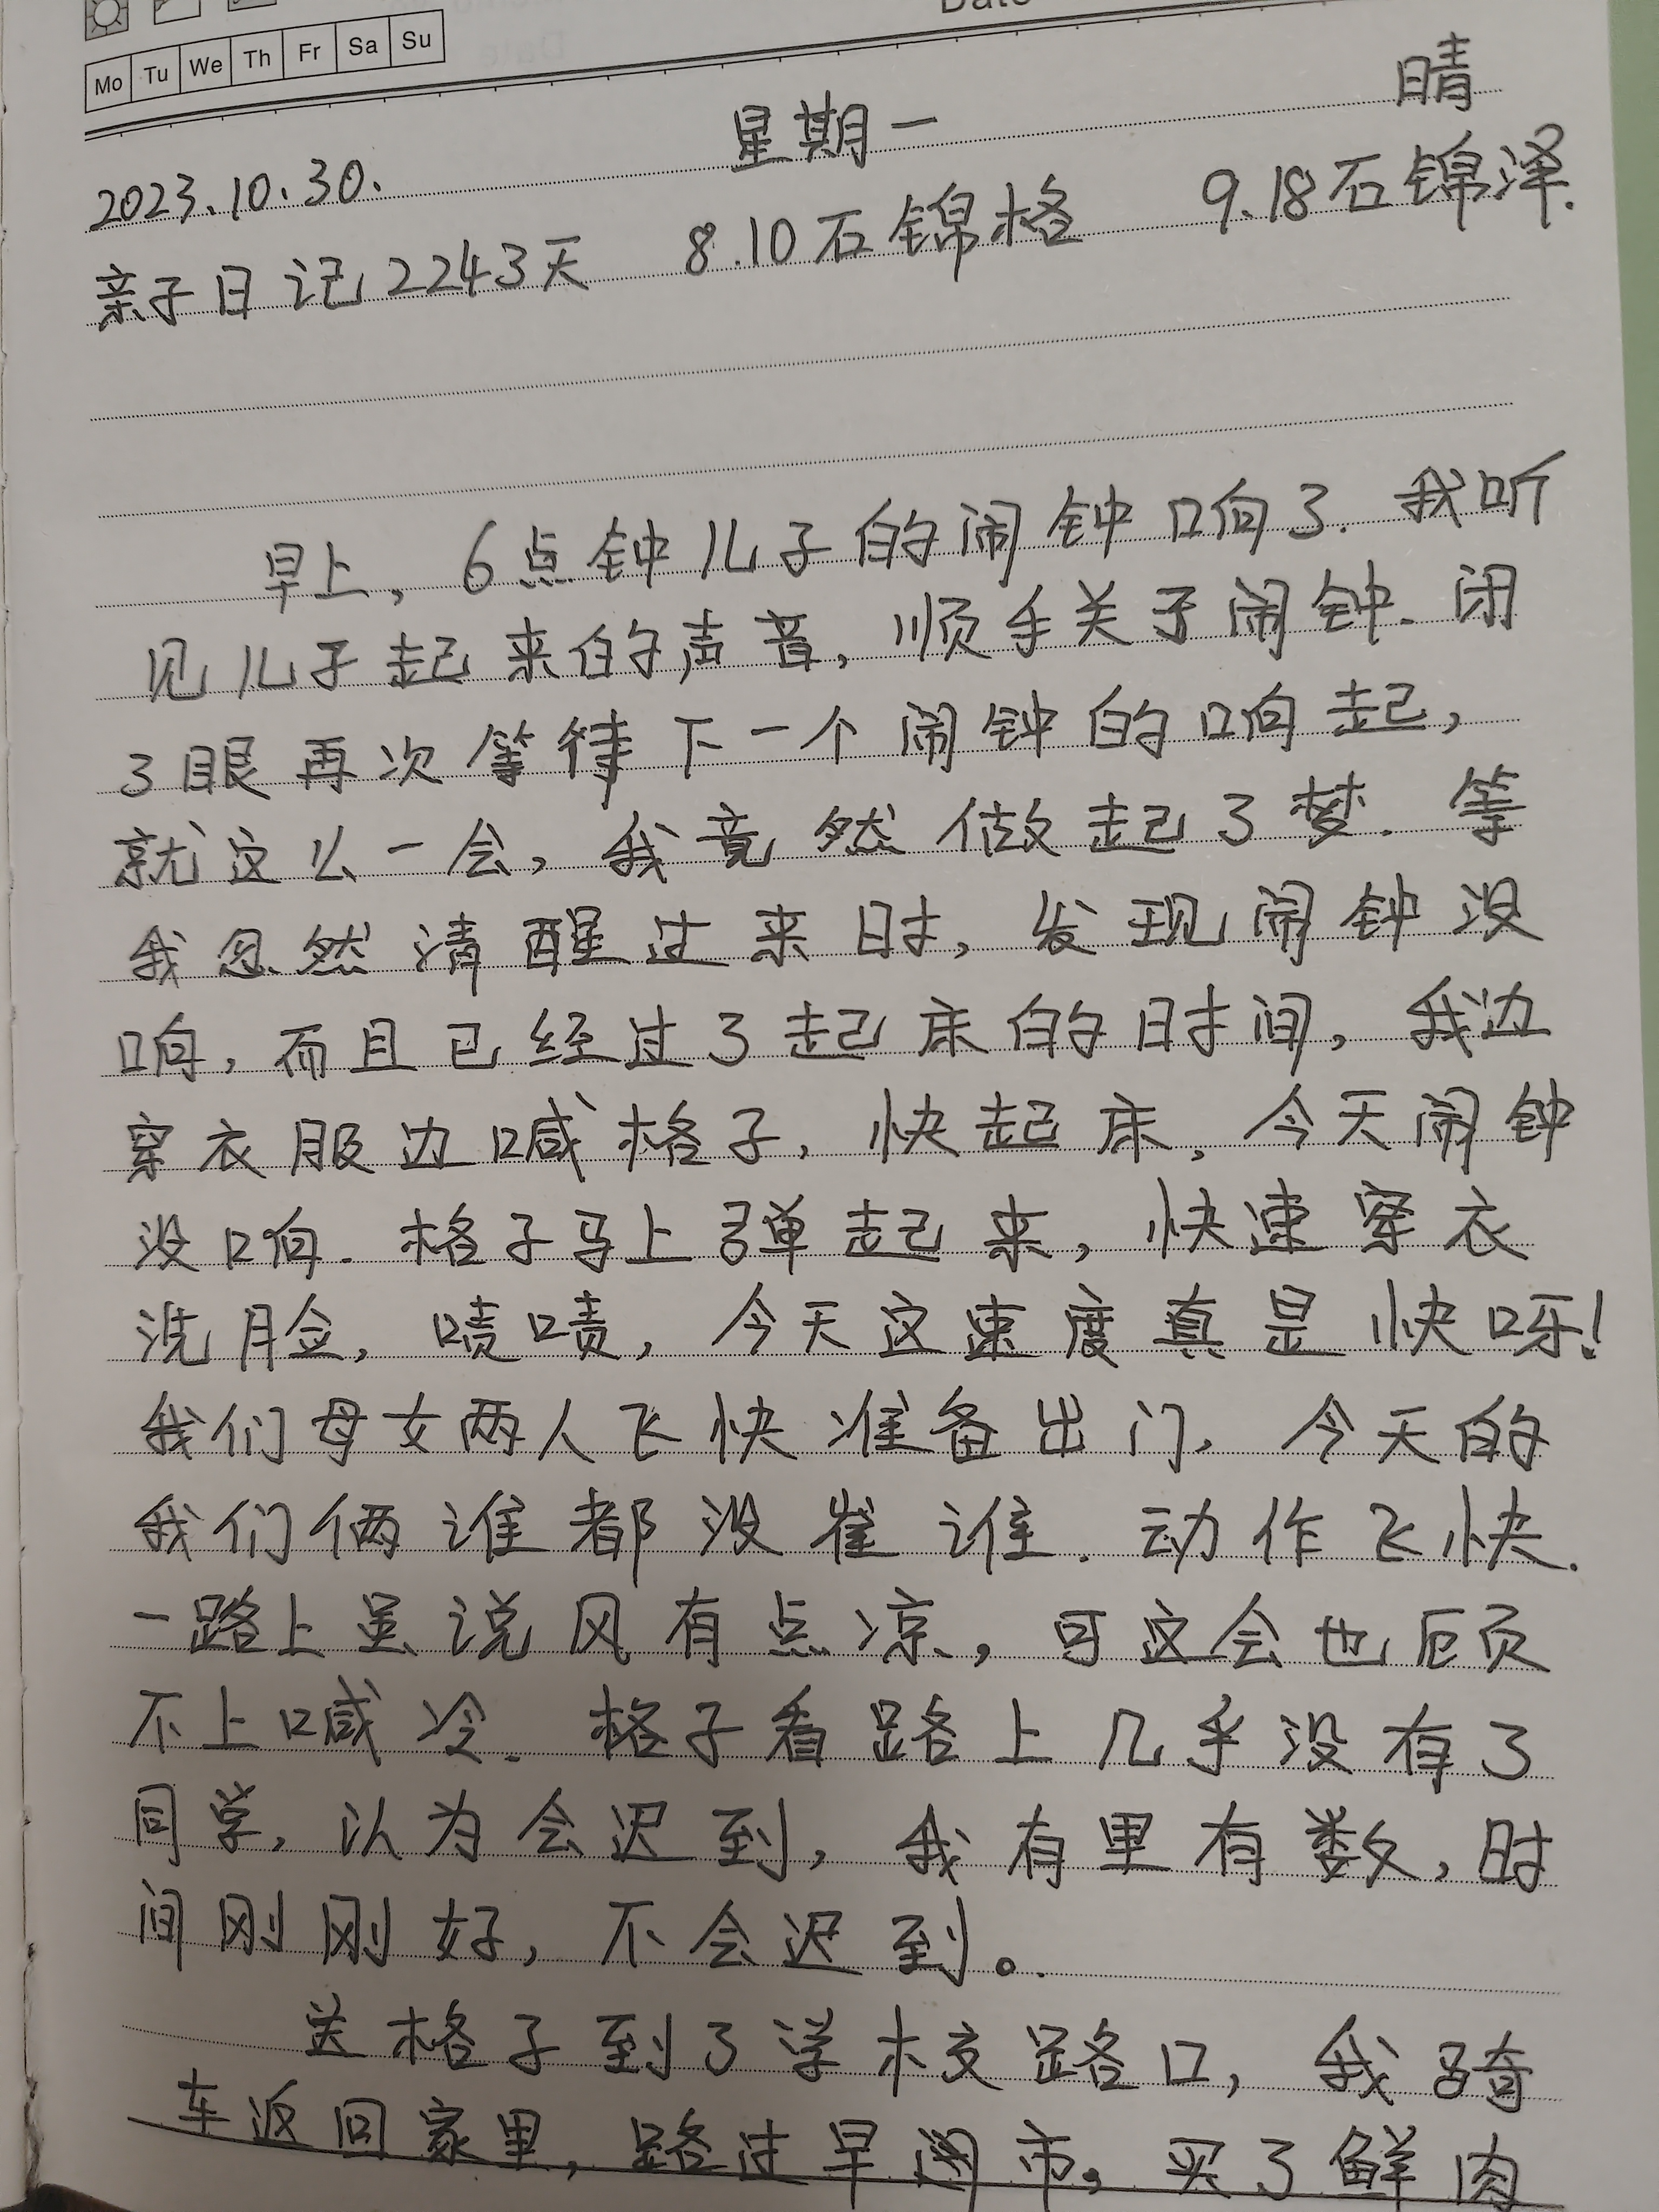 Date
Mo Tu We Th Fr Sa Su
星期一 晴
2023.10.30.
亲子日记2243天 8.10石锦格 9.18石锦泽.
早上，6点钟儿子的闹钟响了.我听
见儿子起来的声音，顺手关于闹钟.闭
了眼再次等待下一个闹钟的响起，
就这么一会，我竟然做起了梦.等
我忽然清醒过来时，发现闹钟没
响，而且已经过了起床的时间，我边
穿衣服边喊格子，快起床，今天闹钟
没响.格子马上弹起来，快速穿衣
洗脸，啧啧，今天这速度真是快呀！
我们母女两人飞快准备出门，今天的
我们俩谁都没崔谁.动作飞快.
一路上虽说风有点凉，可这会也顾
不上喊冷.格子看路上几乎没有了
同学，认为会迟到，我有里有数，时
间刚刚好，不会迟到。
送格子到了学校路口，我骑
车返回家里，路过早市，买了鲜肉